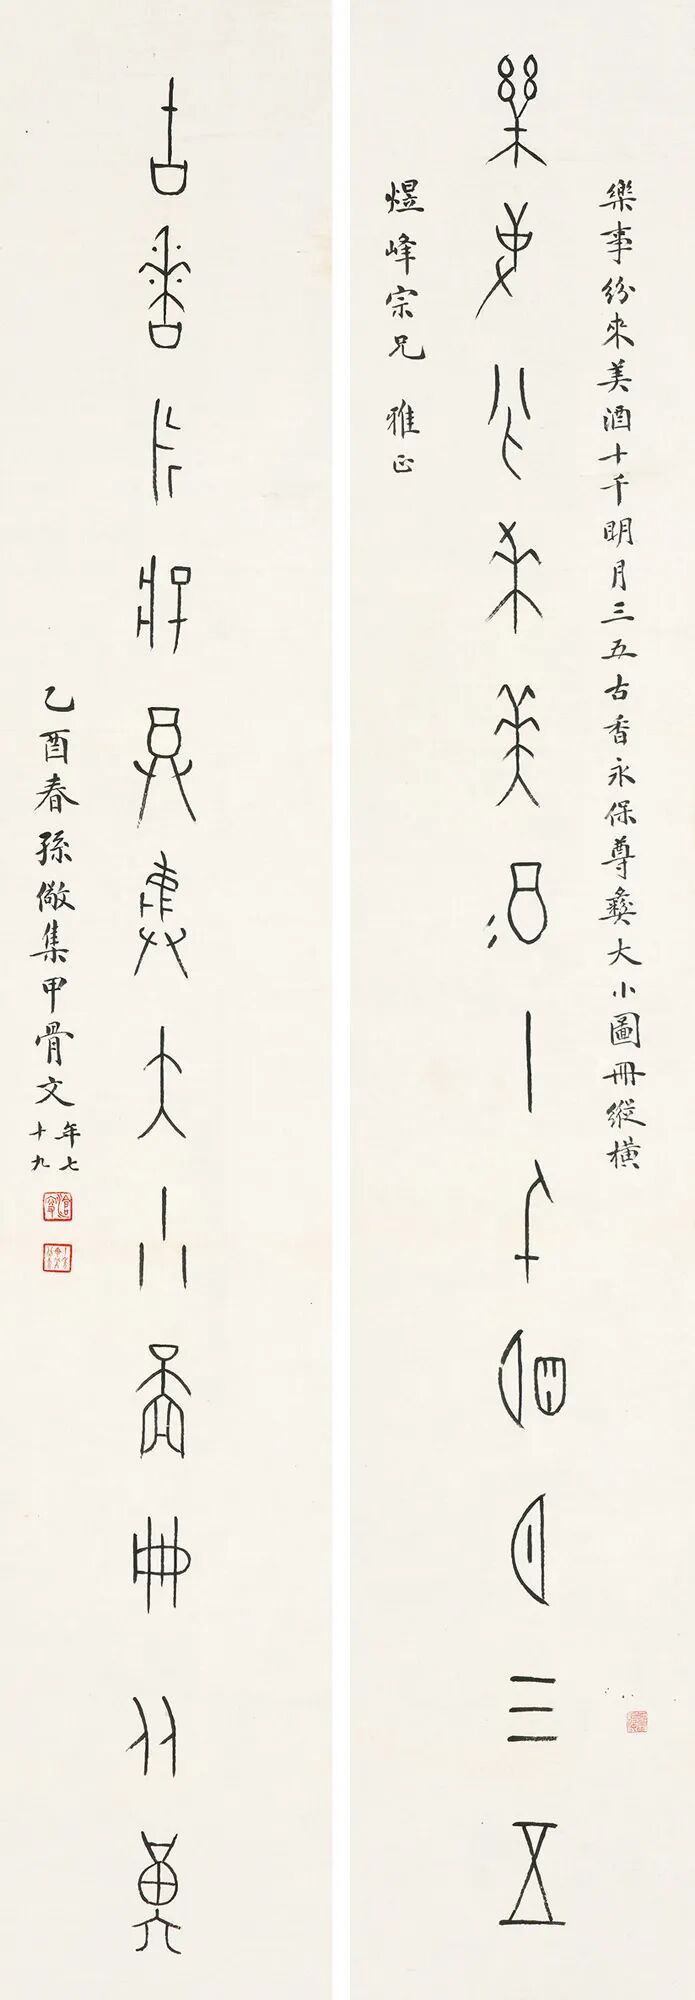 樂事紛來美酒十千明月三五古香永保尊彝大小圖冊縱橫
樂事分來美酒十千明月三五
煜峰宗兄 雅正
古香永保尊彝大小圖冊从黃
乙酉春孫儆集甲骨文年七十九